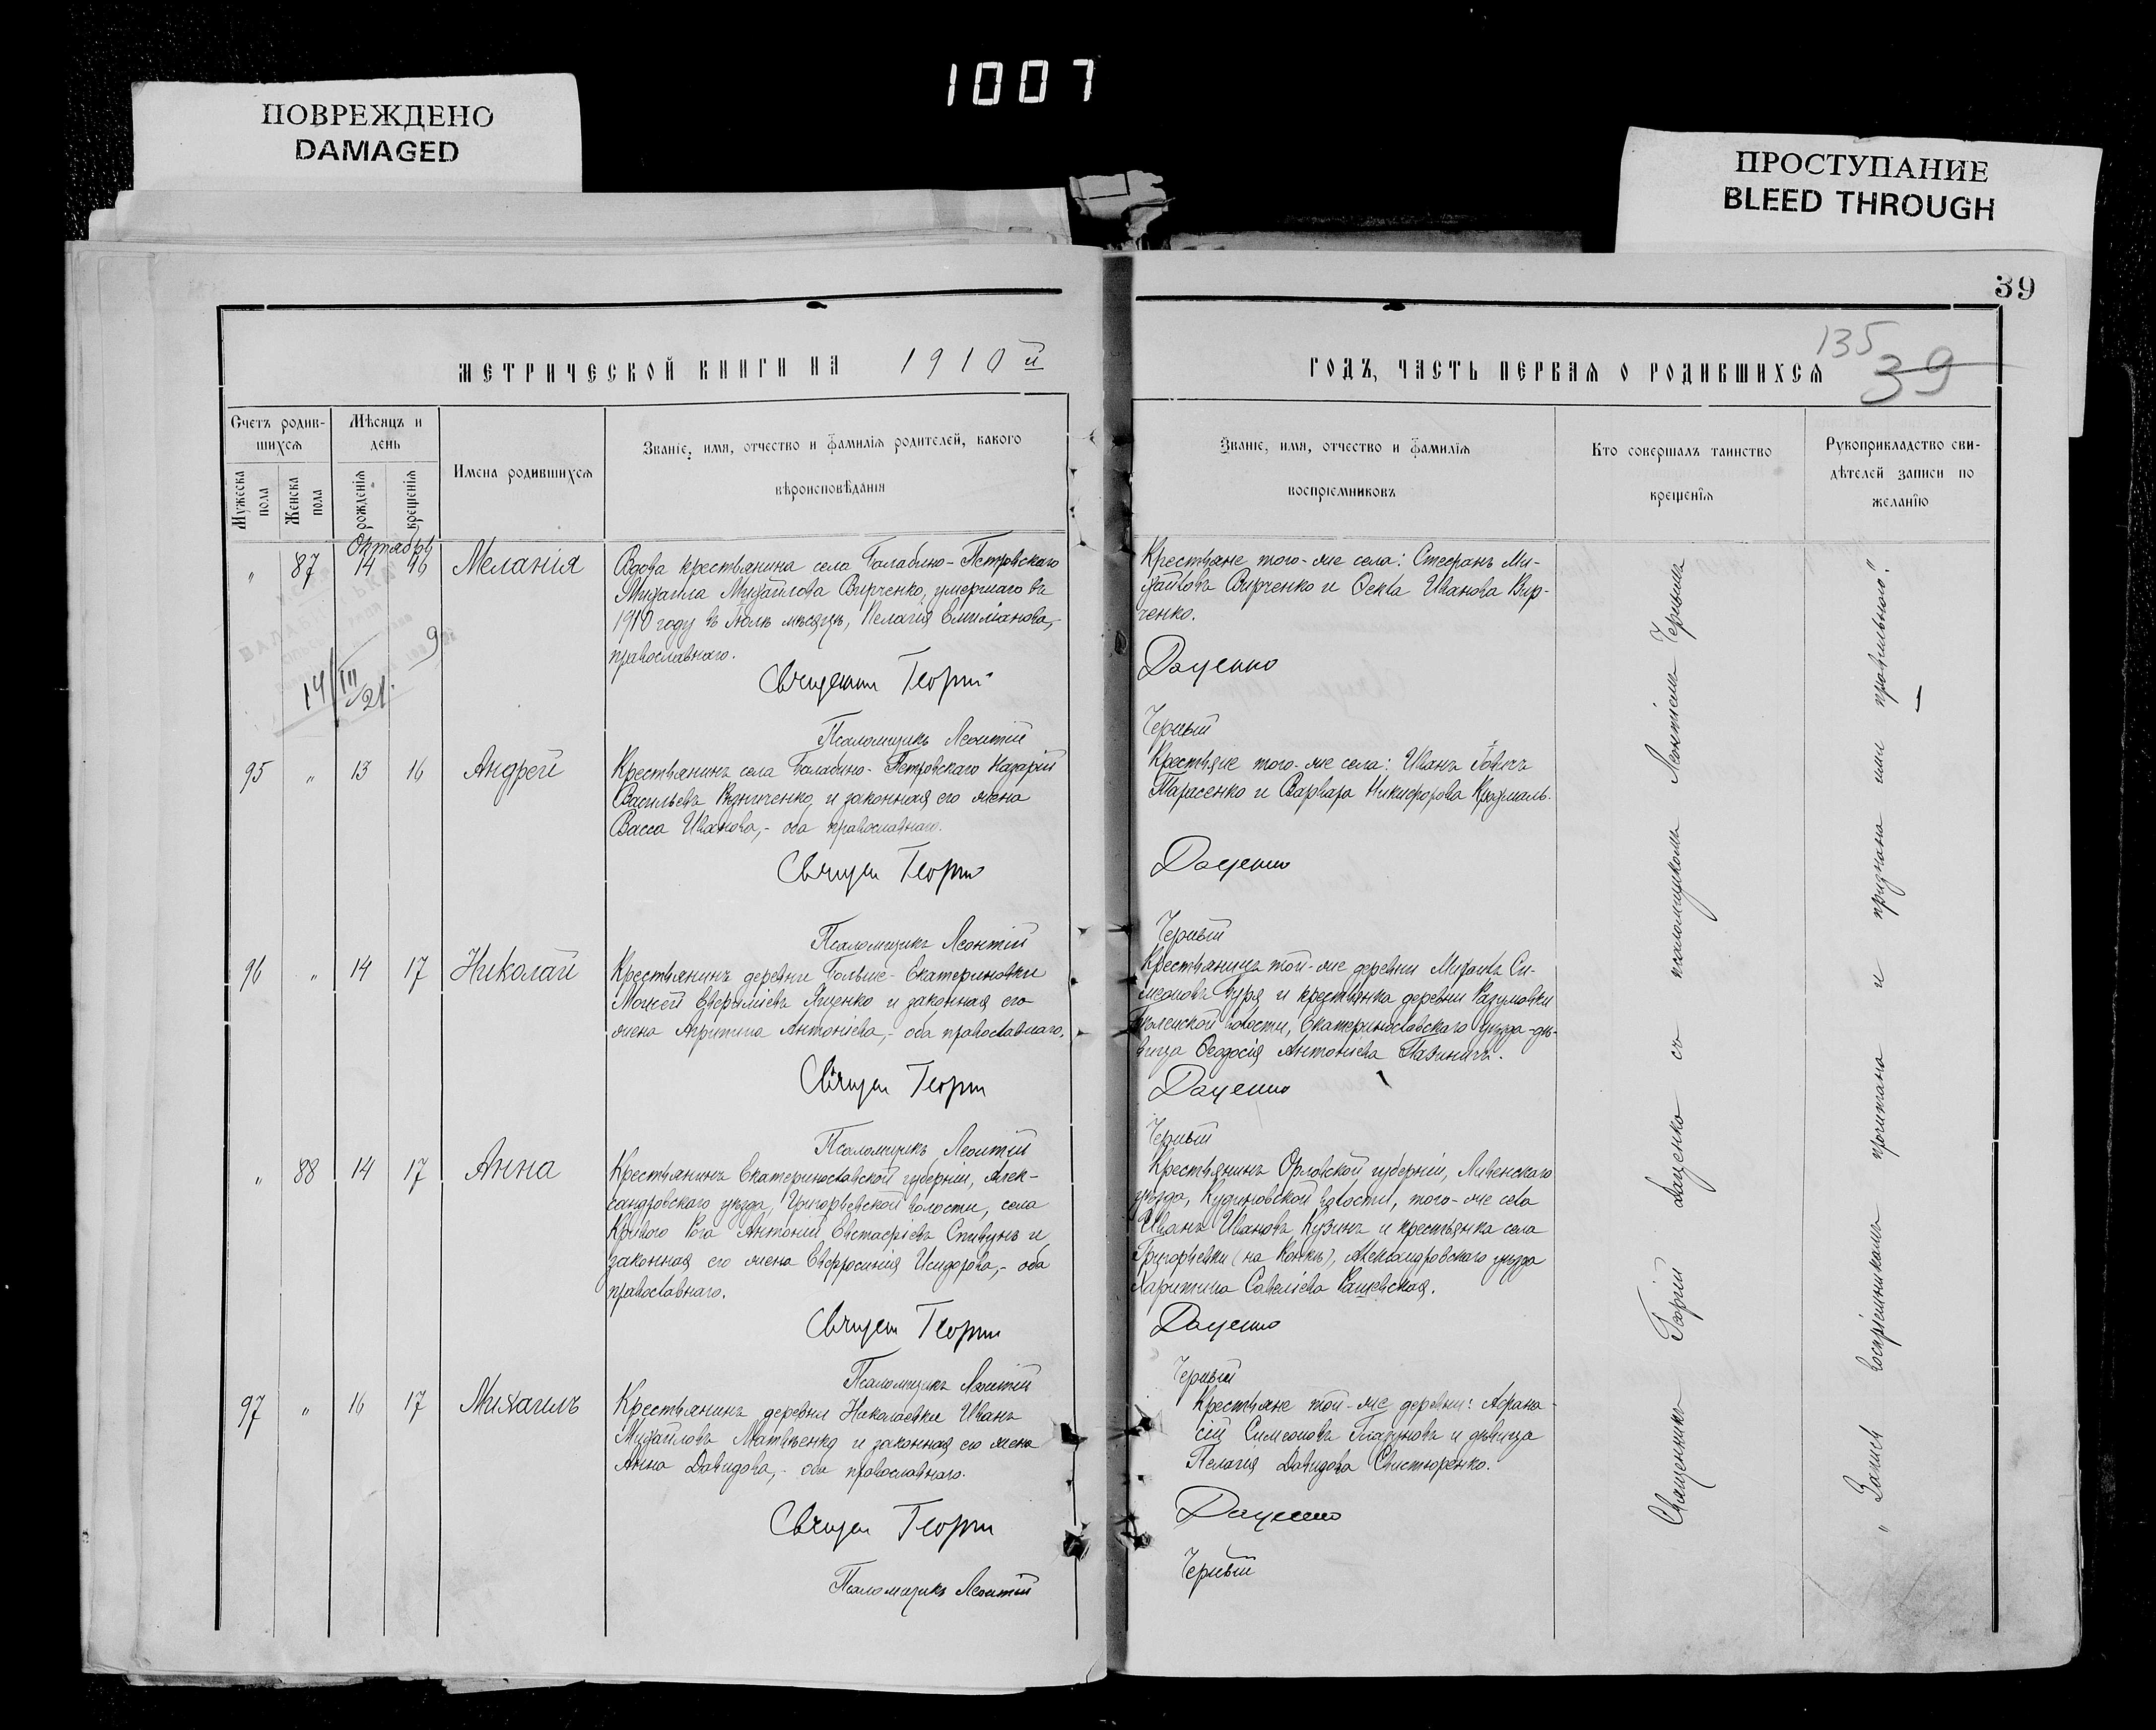 1007
ПОВРЕЖДЕНО
DAMAGED
ПРОСТУПАНИЕ
BLEED THROUGH
39
МЕТРИЧЕСКОЙ КНИГИ НА 1910й
Счетъ родив-
шихся
Мѣсяцъ и
день
Мужеска
пола
Женска
пола
рожденія
крещенія
Имена родившихся
Званіе, имя, отчество и фамилія родителей, какого
вѣроисповѣданія
Октябрь
" 87 14 16 Меланія
Вдова крестьянина села Балабино-Петровскаго
Михаила Михайлова Вирченко, умершаго въ
1910 году въ Іюлѣ мѣсяцѣ, Пелагія Емиліанова,-
православнаго.
9
14/III 21.
Священни Георгій
Псаломщикъ Леонтій
95 " 13 16 Андрей
Крестьянинъ села Балабино-Петровскаго Назарій
Васильевъ и законная его жена
Васса Иванова,- оба православнаго.
Священ Георгій
Псаломщикъ Леонтій
96 " 14 17 Николай
Крестьянинъ деревни Больше-Екатериновки
Моисей Яценко и законная его
жена Антоніева,- оба православнаго.
Священ Георгій
Псаломщикъ Леонтій
" 88 14 17 Анна
Крестьянинъ Екатеринославской губерніи, Алек-
сандровскаго уѣзда, Григорьевской волости, села
Кривого Рога Антоній Евстафіевъ Спивунъ и
законная его жена Евфросинія Исидорова,- оба
православнаго.
Священ Георгій
Псаломщикъ Леонтій
97 " 16 17 Михаилъ
Крестьянинъ деревни Николаевки Иванъ
Михайловъ Матвѣенко и законная его жена
Анна Давидова,- оба православнаго.
Священ Георгій
Псаломщикъ Леонтій
135
39
ГОДЪ, ЧАСТЬ ПЕРВАЯ О РОДИВШИХСЯ
Званіе, имя, отчество и фамилія
воспріемниковъ
Кто совершалъ таинство
крещенія
Рукоприкладство сви-
дѣтелей записи по
желанію
Крестьяне того-же села: Стефанъ Ми-
хайловъ Вирченко и Ѳекла Иванова Вир-
ченко.
Даценко
Черный
Крестьяне того-же села: Иванъ
Тарасенко и Варвара Никифорова Крахмаль.
Даценко
Черный
Крестьянинъ той-же деревни Михаилъ Си-
меоновъ Буря и крестьянка деревни Разумовки
волости, Екатеринославскаго уѣзда дѣ-
вица Ѳеодосія Антоніева
Даценко
Черный
Крестьянинъ Орловской губерніи, Ливенскаго
уѣзда, Кудиновской волости, того-же села
Иванъ Ивановъ Кузинъ и крестьянка села
Григорьевки (на Конкѣ), Александровскаго уѣзда
Харитина Савеліева Ращевская.
Даценко
Черный
Крестьяне той-же деревни: Афана-
сій Симеоновъ и дѣвица
Пелагія Давидова Свистюренко.
Даценко
Черный
Священникъ Георгій Даценко съ псаломщикомъ Леонтіемъ Чернымъ
"Запись воспріемниками прочитана и признана ими правильной".